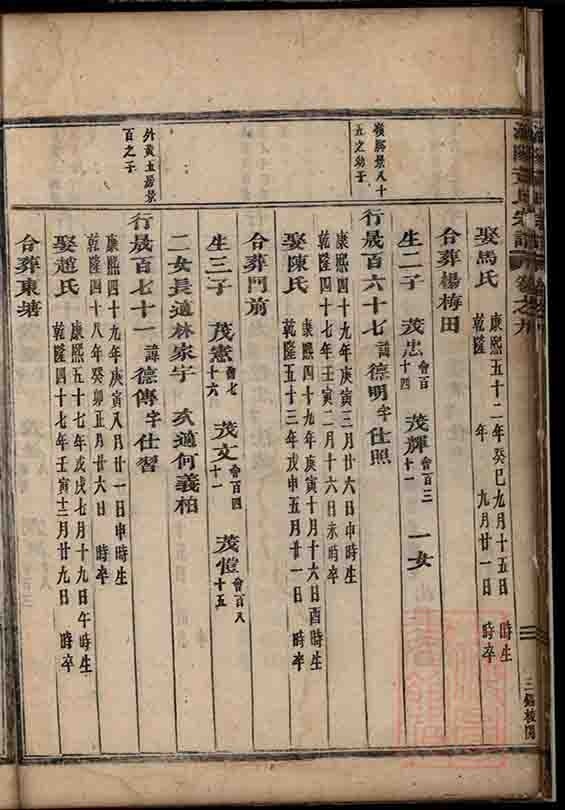 卷之九
娶馬氏
康熙五十二年癸巳九月十五日 時生
乾隆 年 九月廿一日 時卒
合葬楊梅田
生二子 茂忠會百十四 茂輝會百三十一 一女
五之幼子
行晟百六十七諱德明字仕照
康熙四十九年庚寅三月廿六日申時生
乾隆四十七年壬寅二月十六日未時卒
娶陳氏
康熙四十九年庚寅十月十六日酉時生
乾隆五十三年戊申五月廿一日 時卒
合葬門前
生三子 茂憲會七十六 茂文會百四十一 茂愷會百八十五
二女長適林家宇 次適何義柏
百之子
行晟百七十一諱德傳字仕習
康熙四十九年庚寅八月廿一日申時生
乾隆四十八年癸卯正月廿六日 時卒
娶趙氏
康熙五十七年戊戌七月十九日午時生
乾隆四十七年壬寅十二月廿九日 時卒
合葬東塘